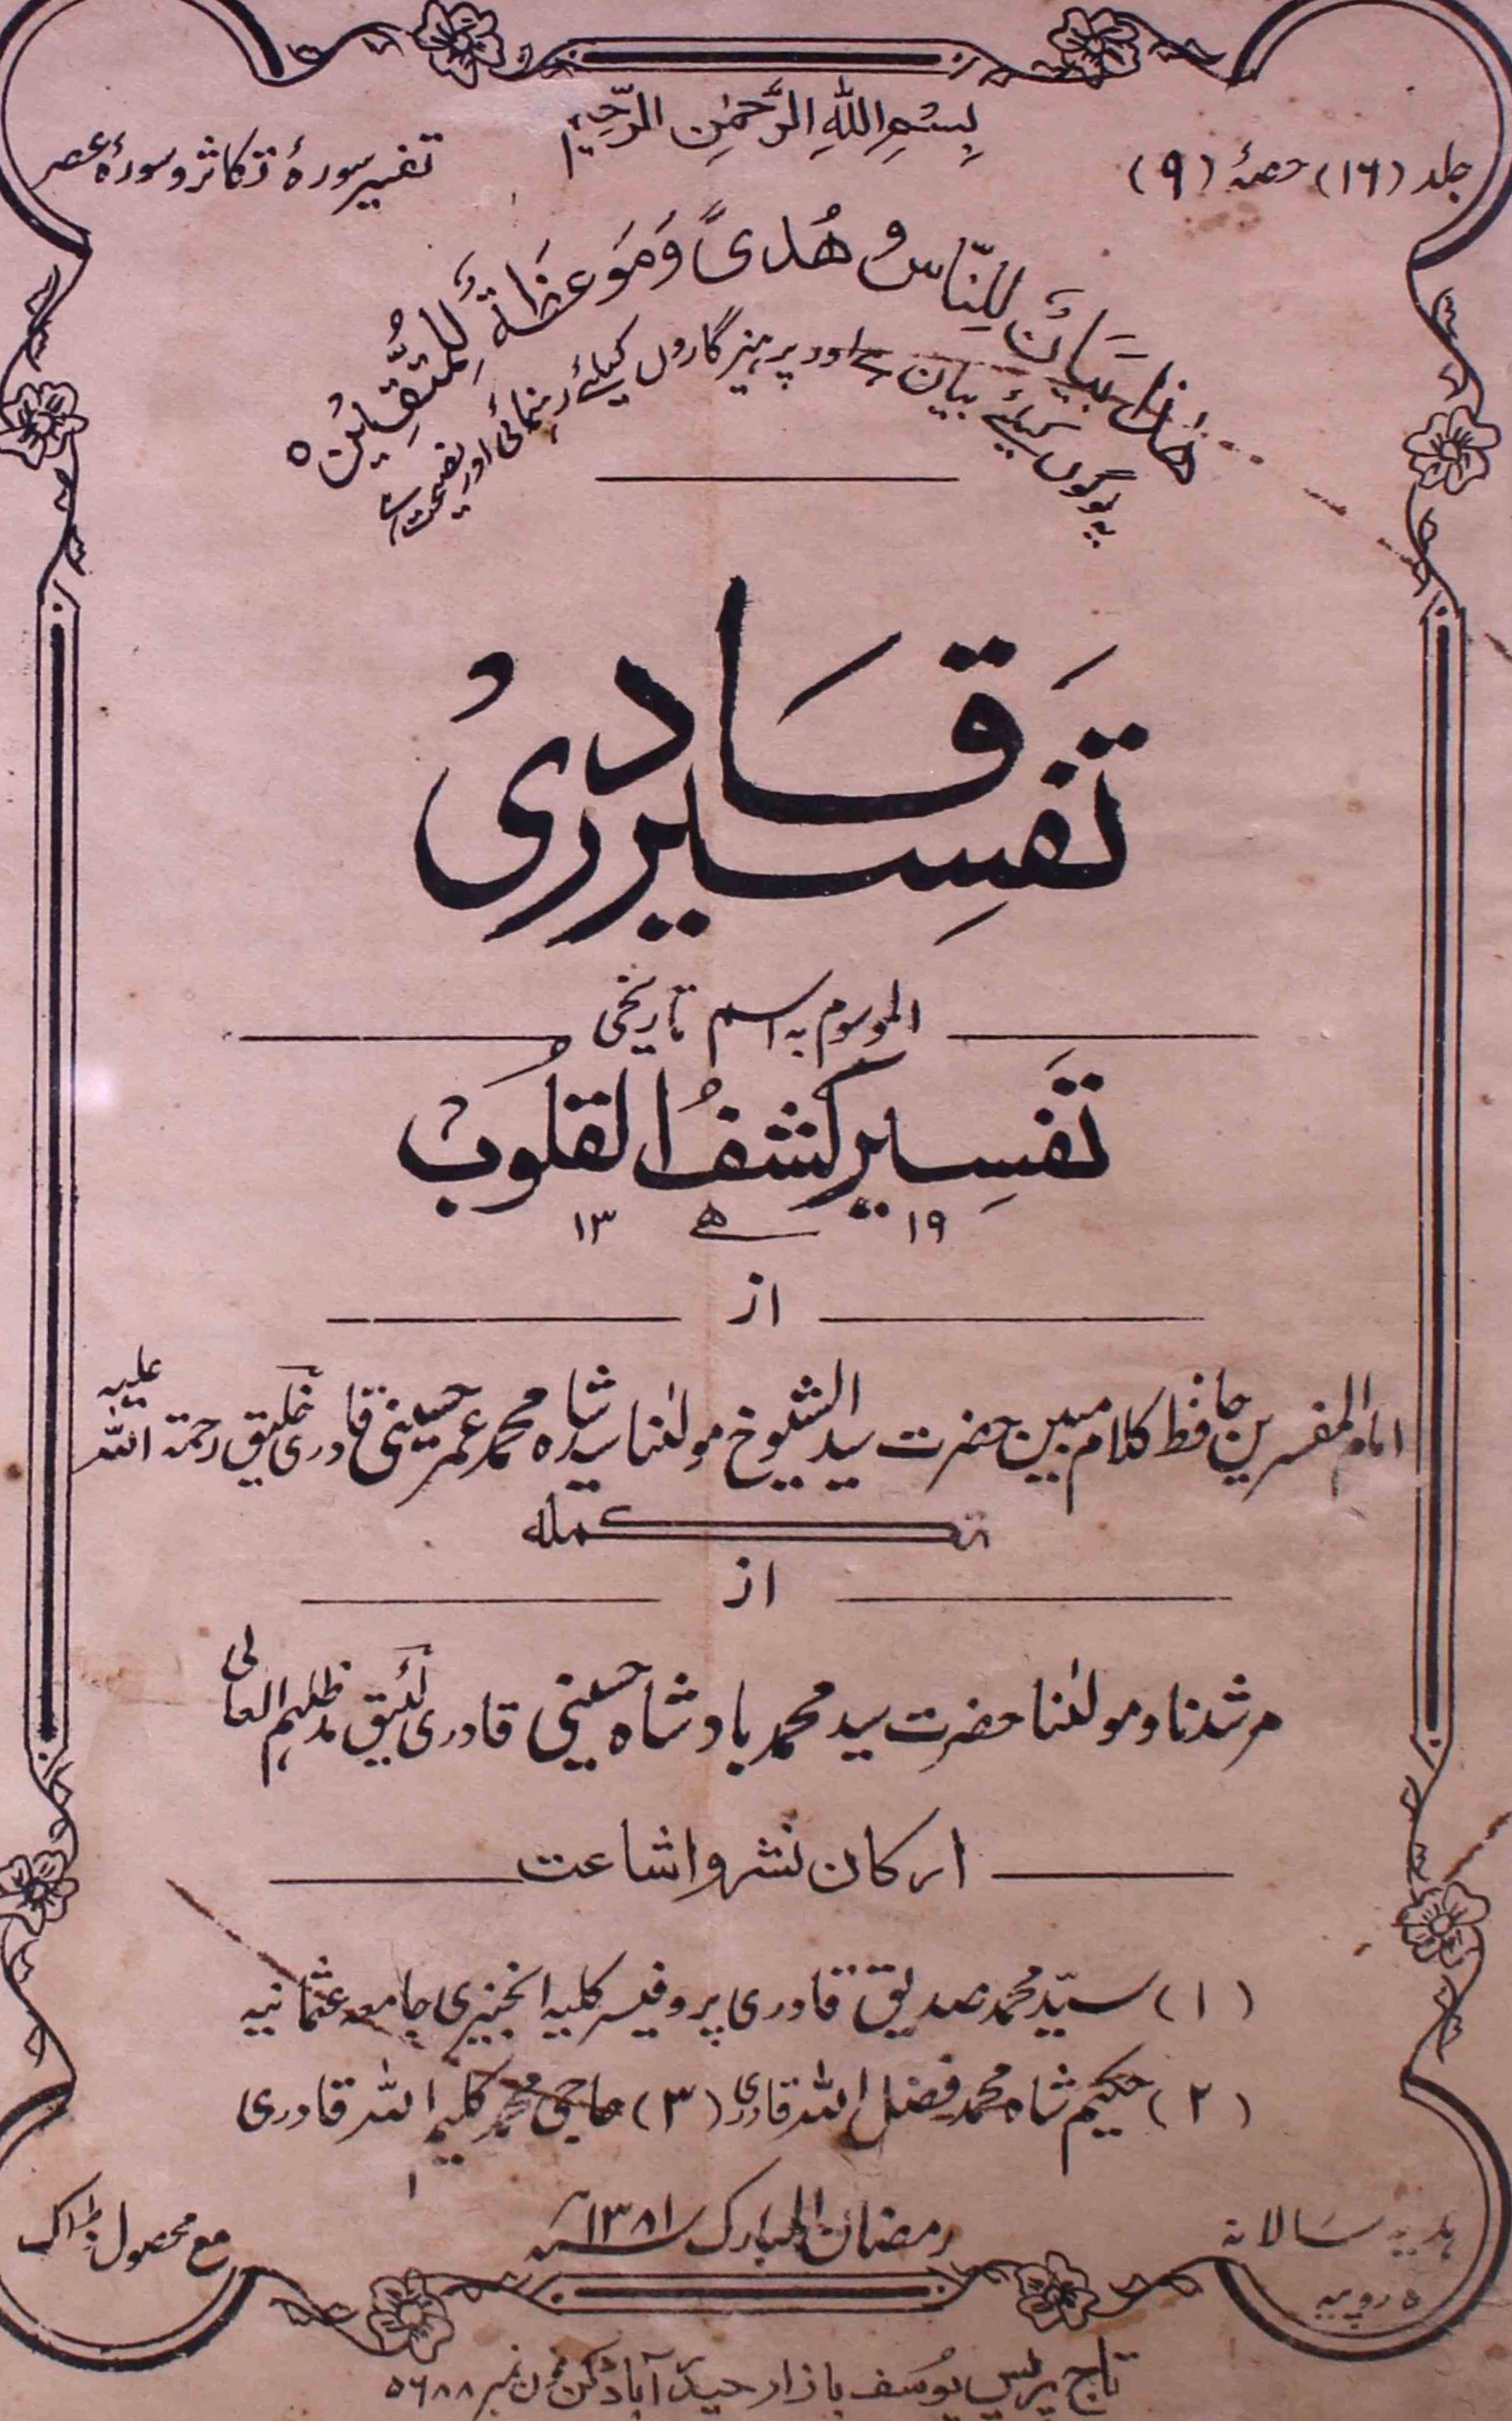 بِسْمِ اللّٰہِ الرَّحْمٰنِ الرَّحِیْمِ
جلد (۱۶) حصۂ (۹)
تفسیر سورۂ تکاثر و سورۂ عصر
ھٰذَا بَیَانٌ لِّلنَّاسِ وَ ھُدًی وَّ مَوْعِظَۃٌ لِّلْمُتَّقِیْنَ ہ
یہ لوگوں کیلئے بیان ہے اور پرہیزگاروں کیلئے رہنمائی اور نصیحت ہے
تَفسِیر قَادریْ
الموسوم بہ اسم تاریخی
تَفسِیر کشفُ القلُوبْ
۱۹ ھ ۱۳
از
امام المفسرین حافظ کلام مبین حضرت سید الشیوخ مولٰنا سید شاہ محمد عمر حسینی قادری خلیق رحمۃ اللہ علیہ
تکملہ
از
مرشدنا و مولٰنا حضرت سید محمد بادشاہ حسینی قادری لئیق مدظلہم العالی
ارکان نشر و اشاعت
(۱) سیّد محمد صدیق قادری پروفیسر کلیہ انجنیری جامعہ عثمانیہ
(۲) حکیم شاہ محمد فضل اللہ قادری (۳) حاجی محمد کلیم اللہ قادری
ہدیہ سالانہ
۵ روپیہ
رمضان المبارک ۱۳۸۱ سنہ
مع محصول ڈاک
تاج پریس یوسف بازار حیدرآباد دکن فون نمبر ۵۶۸۸